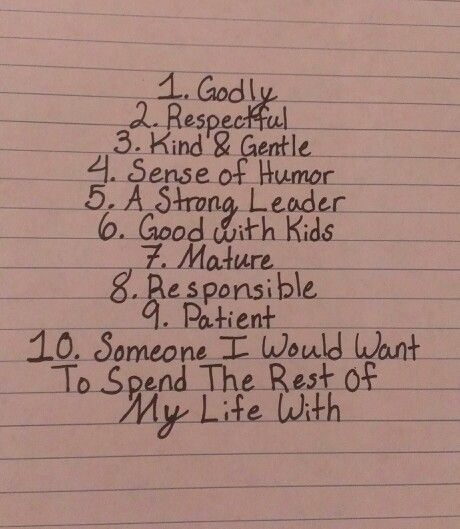 1. Godly
2. Respectful
3. Kind & Gentle
4. Sense of Humor
5. A Strong Leader
6. Good with Kids
7. Mature
8. Responsible
9. Patient
10. Someone I Would Want
To Spend The Rest Of
My Life With